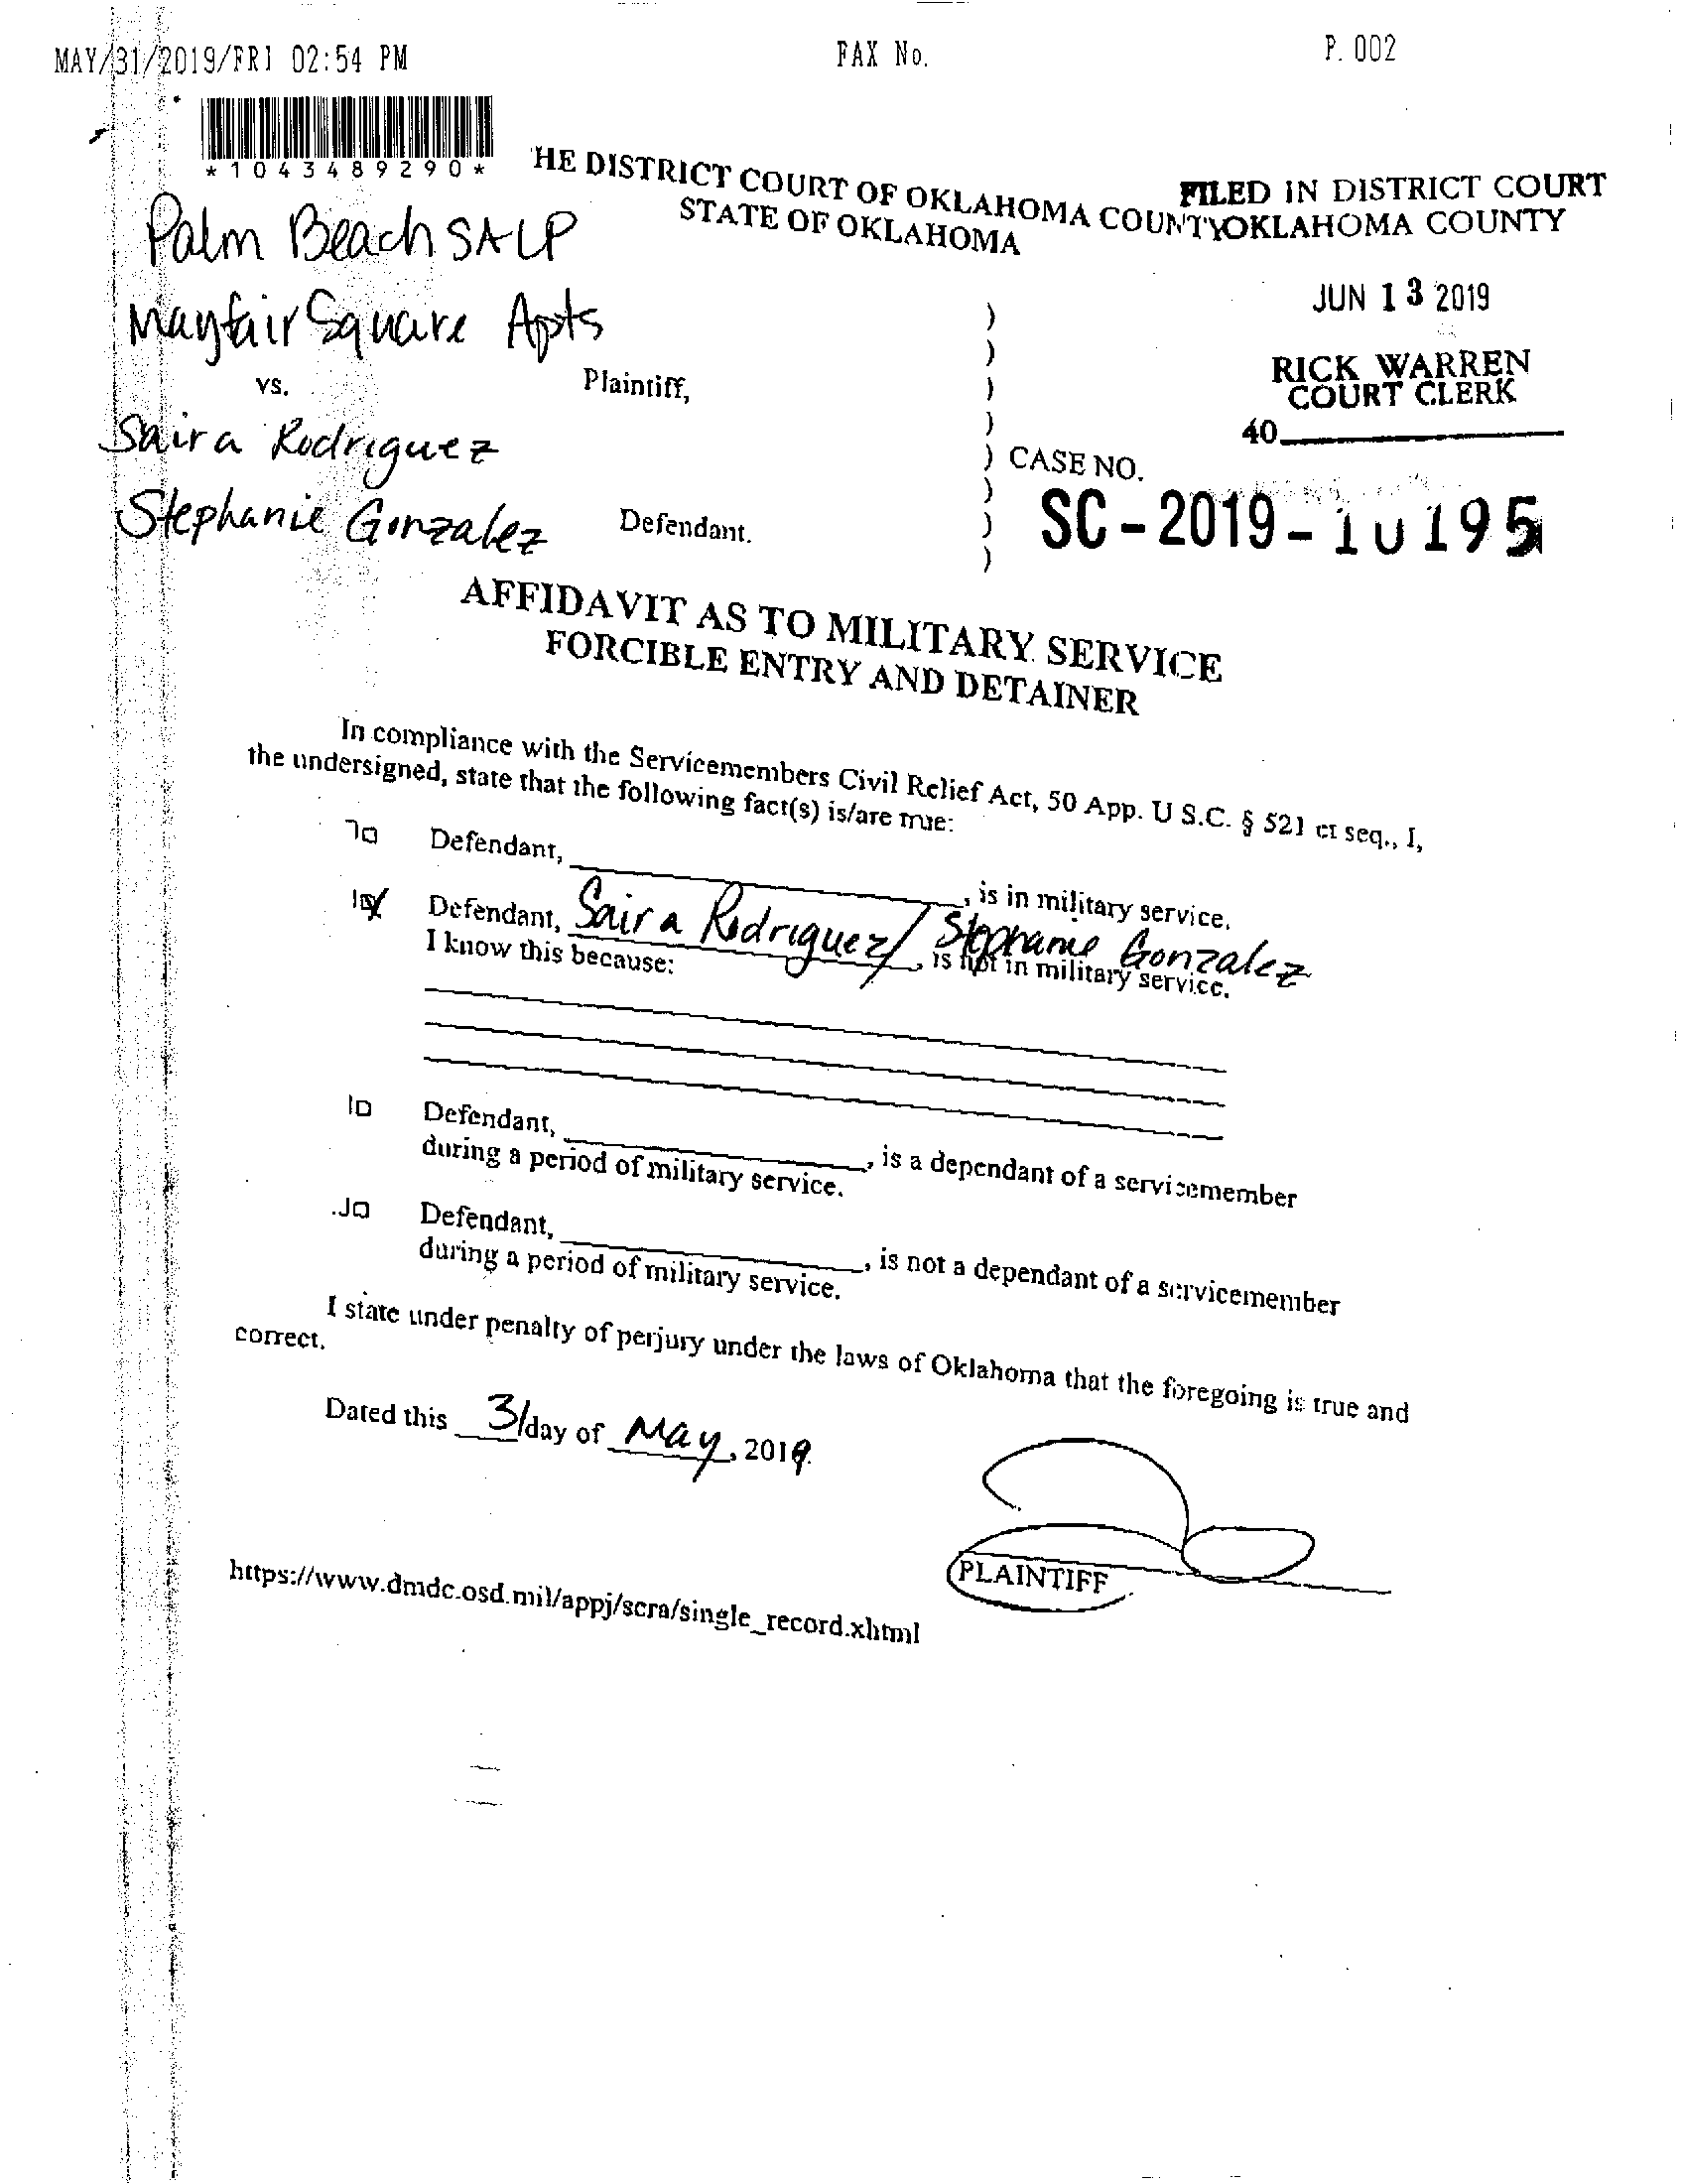 MAY/31/2019/FRI 02:54 PM FAX No. P. 002
*1043489290*
HE DISTRICT COURT OF OKLAHOMA COUNTY
STATE OF OKLAHOMA
FILED IN DISTRICT COURT
OKLAHOMA COUNTY
JUN 13 2019
RICK WARREN
COURT CLERK
40
Palm Beach SA LP
Mayfair Square Apts
Plaintiff,
vs.
Saira Rodriguez
Stephanie Gonzalez
Defendant.
)
)
)
)
) CASE NO.
)
)
)
SC-2019-10195
AFFIDAVIT AS TO MILITARY SERVICE
FORCIBLE ENTRY AND DETAINER
In compliance with the Servicemembers Civil Relief Act, 50 App. U S.C. § 521 et seq., I,
the undersigned, state that the following fact(s) is/are true:
Defendant, , is in military service.
Defendant, Saira Rodriguez/ Stephanie Gonzalez, is not in military service.
I know this because:
Defendant, , is a dependant of a servicemember
during a period of military service.
Defendant, , is not a dependant of a servicemember
during a period of military service.
I state under penalty of perjury under the laws of Oklahoma that the foregoing is true and
correct.
Dated this 31 day of May, 2019.
PLAINTIFF
https://www.dmdc.osd.mil/appj/scra/single_record.xhtml